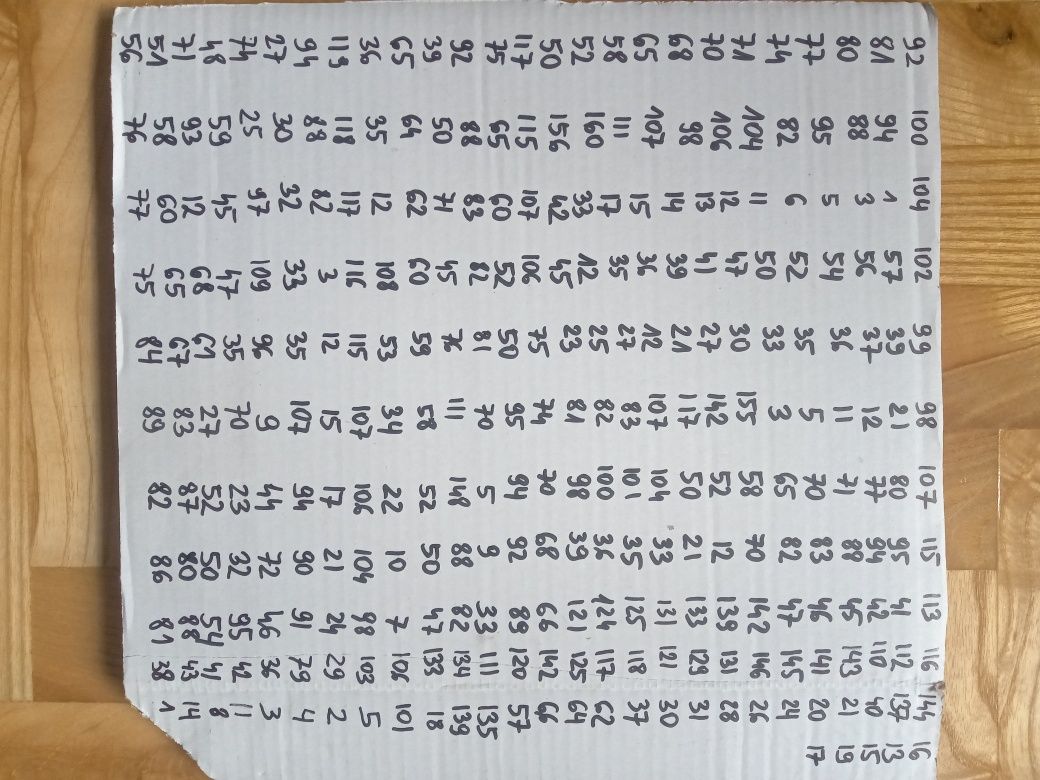 92 100 104 102 99 98 107 115 113 116 144 16
81 94 1 57 39 21 80 95 41 112 137 13
80 88 3 56 37 12 77 94 42 110 40 15
77 95 5 54 36 11 71 88 45 143 21 19
74 82 6 52 35 5 70 83 46 141 20 17
71 104 11 50 33 3 65 82 47 145 24
70 106 12 47 30 155 58 70 142 146 26
68 98 13 41 27 142 52 12 139 131 28
65 107 14 39 21 117 50 21 133 129 31
58 111 15 36 12 107 104 33 131 121 30
52 160 17 35 27 83 101 35 125 118 37
50 156 33 12 25 82 100 36 124 117 62
117 115 42 45 23 81 98 39 121 125 64
75 65 107 106 75 74 70 68 66 142 66
92 88 60 52 50 95 94 92 89 120 57
39 50 83 82 81 70 5 9 33 111 135
65 64 71 45 76 111 148 88 82 134 139
36 35 62 60 59 58 52 50 47 133 18
113 118 12 108 53 34 22 10 7 106 101
94 88 117 116 115 107 106 104 98 103 5
27 30 82 3 12 15 17 21 24 29 2
74 25 32 33 35 107 94 90 91 79 4
48 59 97 109 96 9 44 72 46 36 3
71 93 45 47 35 70 23 32 95 42 11
51 58 12 68 61 27 52 50 54 41 8
56 76 60 65 67 83 87 80 88 43 14
77 75 84 89 82 86 81 38 1